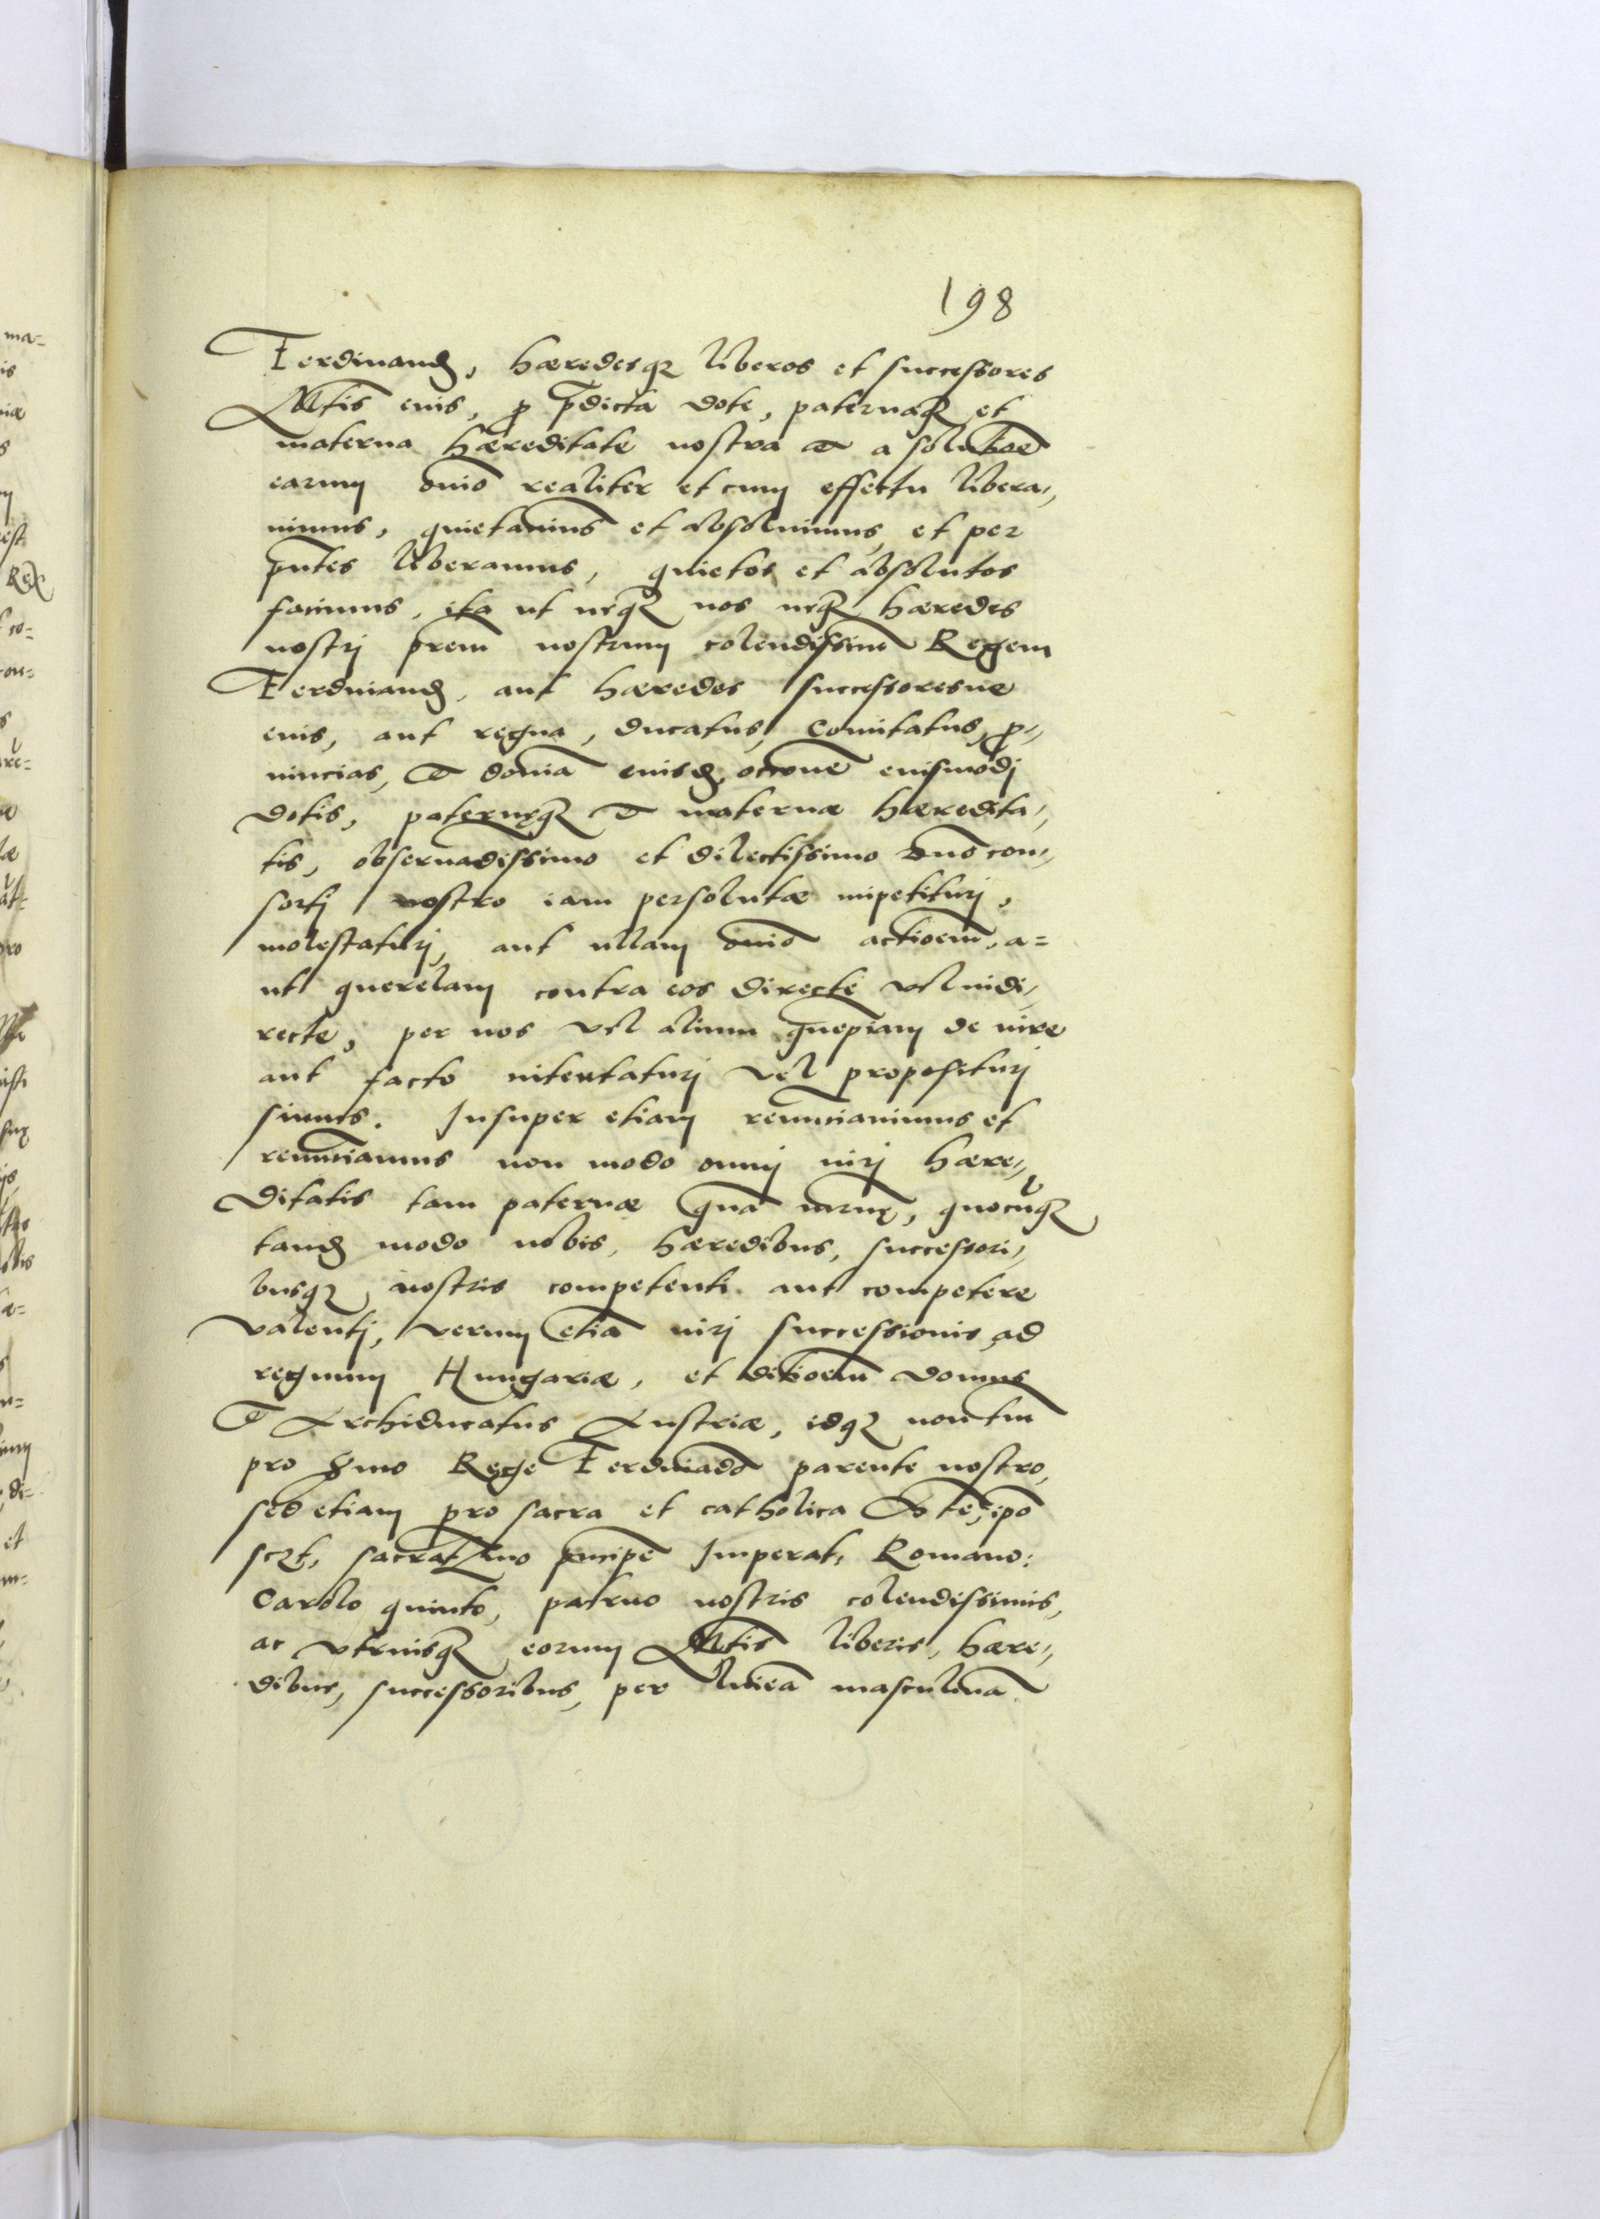 198
Ferdinandũ, hæredesq; liberos et successores
Mtis eius, p p̄dicta dote, paternaq; et
materna hæreditate nostra et a solutiõe
earum om̃ino realiter et cum effectu libera„
uimus, quietauimus et absoluimus, et per
p̃ntes liberamus, quietos et absolutos
facimus, ita ut neq; nos neq; hæredes
nostrj p̃rem nostrum colendissimũ Regem
Ferdinandũ, aut hæredes successoresue
eius, aut regna, ducatus, Comitatus, p„
uincias, et domĩa eiusdẽ, occõne eiusmodj
dotis, paternęq; et maternæ hæredita„
tis, obseruãdissimo et dilectissimo dno con„
sortj nostro iam persolutæ impetiturj,
molestaturj, aut ullam om̃ino actiõem, a=
ut querelam contra eos directe vel indi„
recte, per nos vel alium quẽpiam de iure
aut facto intentaturj vel propositurj
simus. Insuper etiam renũtiauimus et
renũtiamus non modo omnj iurj hære„
ditatis tam paternæ quã m̃rnę, quocũq;
tandẽ modo nobis, hæredibus, successori„
busq; nostris competentj aut competere
valentj, verum etiã iurj successionis ad
regnum Hungariæ, et ditiõem domus
et Archiducatus Austriæ, idq; non tm̃
pro Smo Rege Ferdinãdo parente nostro,
sed etiam pro sacra et catholica
sacrat.mo p̃ncipe Imperat. Romano:
Carolo quinto, patruo nostris colendissimis,
ac vtriusq; eorum Mtis liberis, hære„
dibus, successoribus, per lineã masculinã